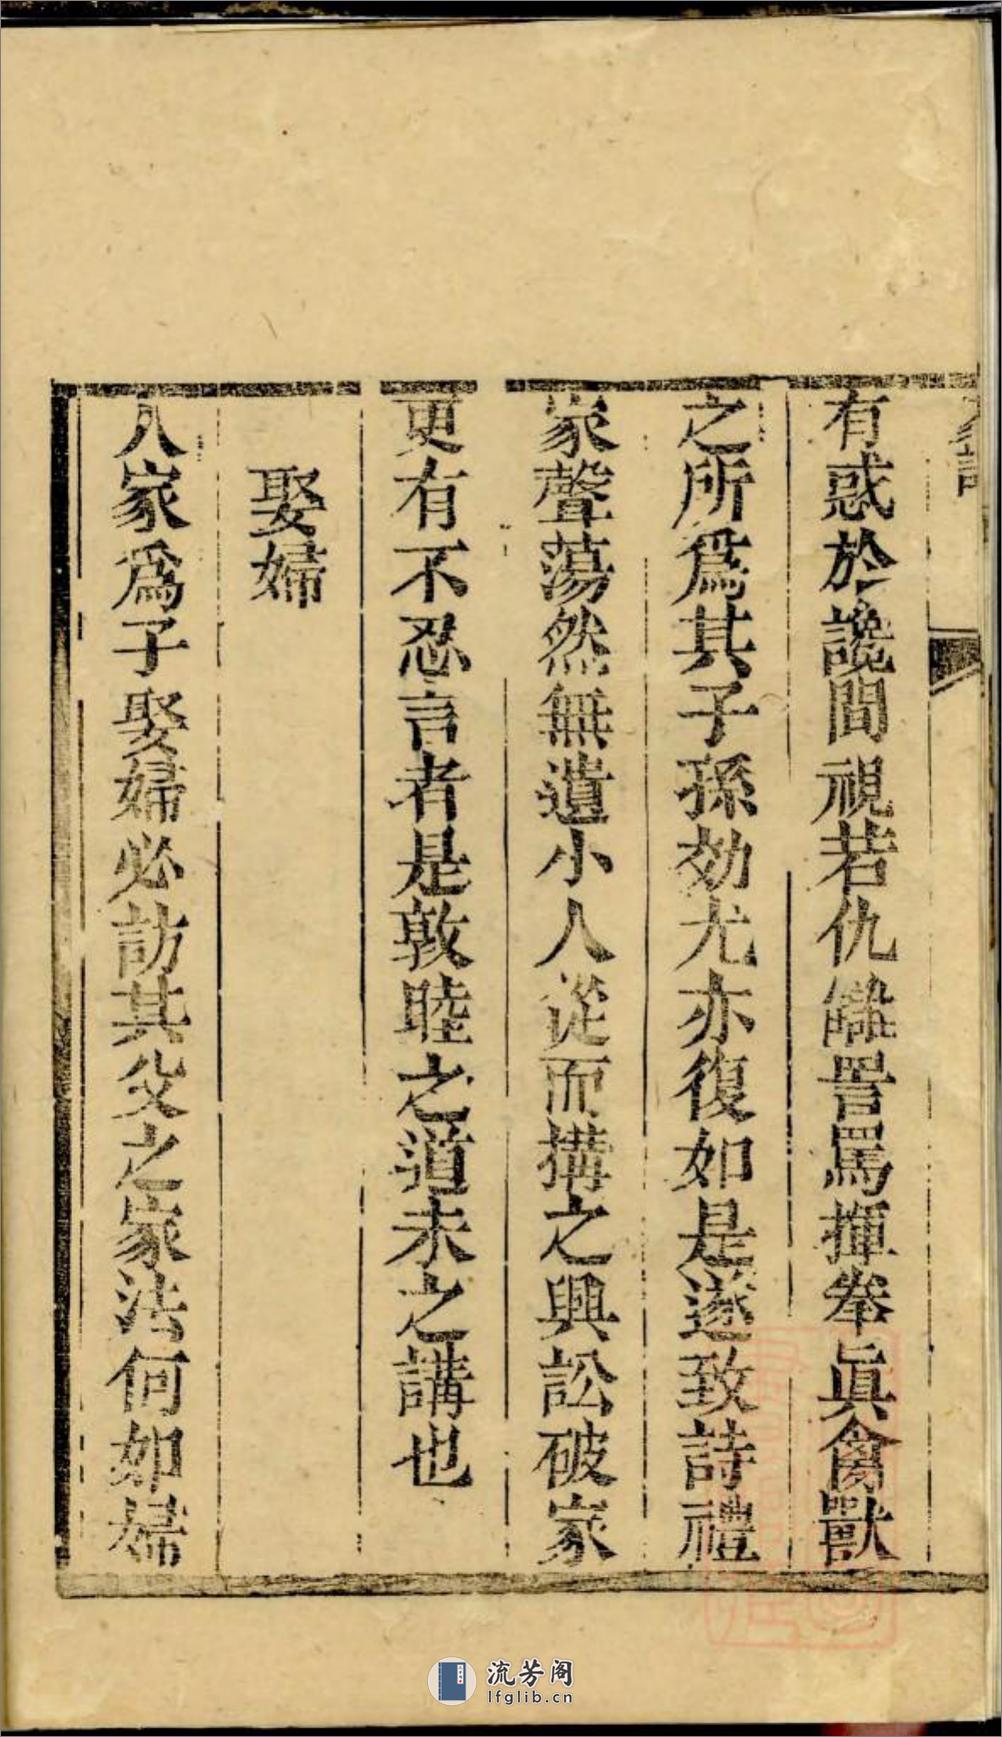 有惑於讒間視若仇讎詈罵揮拳眞禽獸
之所爲其子孫効尤亦復如是遂致詩禮
家聲蕩然無遺小人從而搆之興訟破家
更有不忍言者是敦睦之道未之講也
娶婦
人家爲子娶婦必訪其父之家法何如婦
流芳阁
lfglib.cn